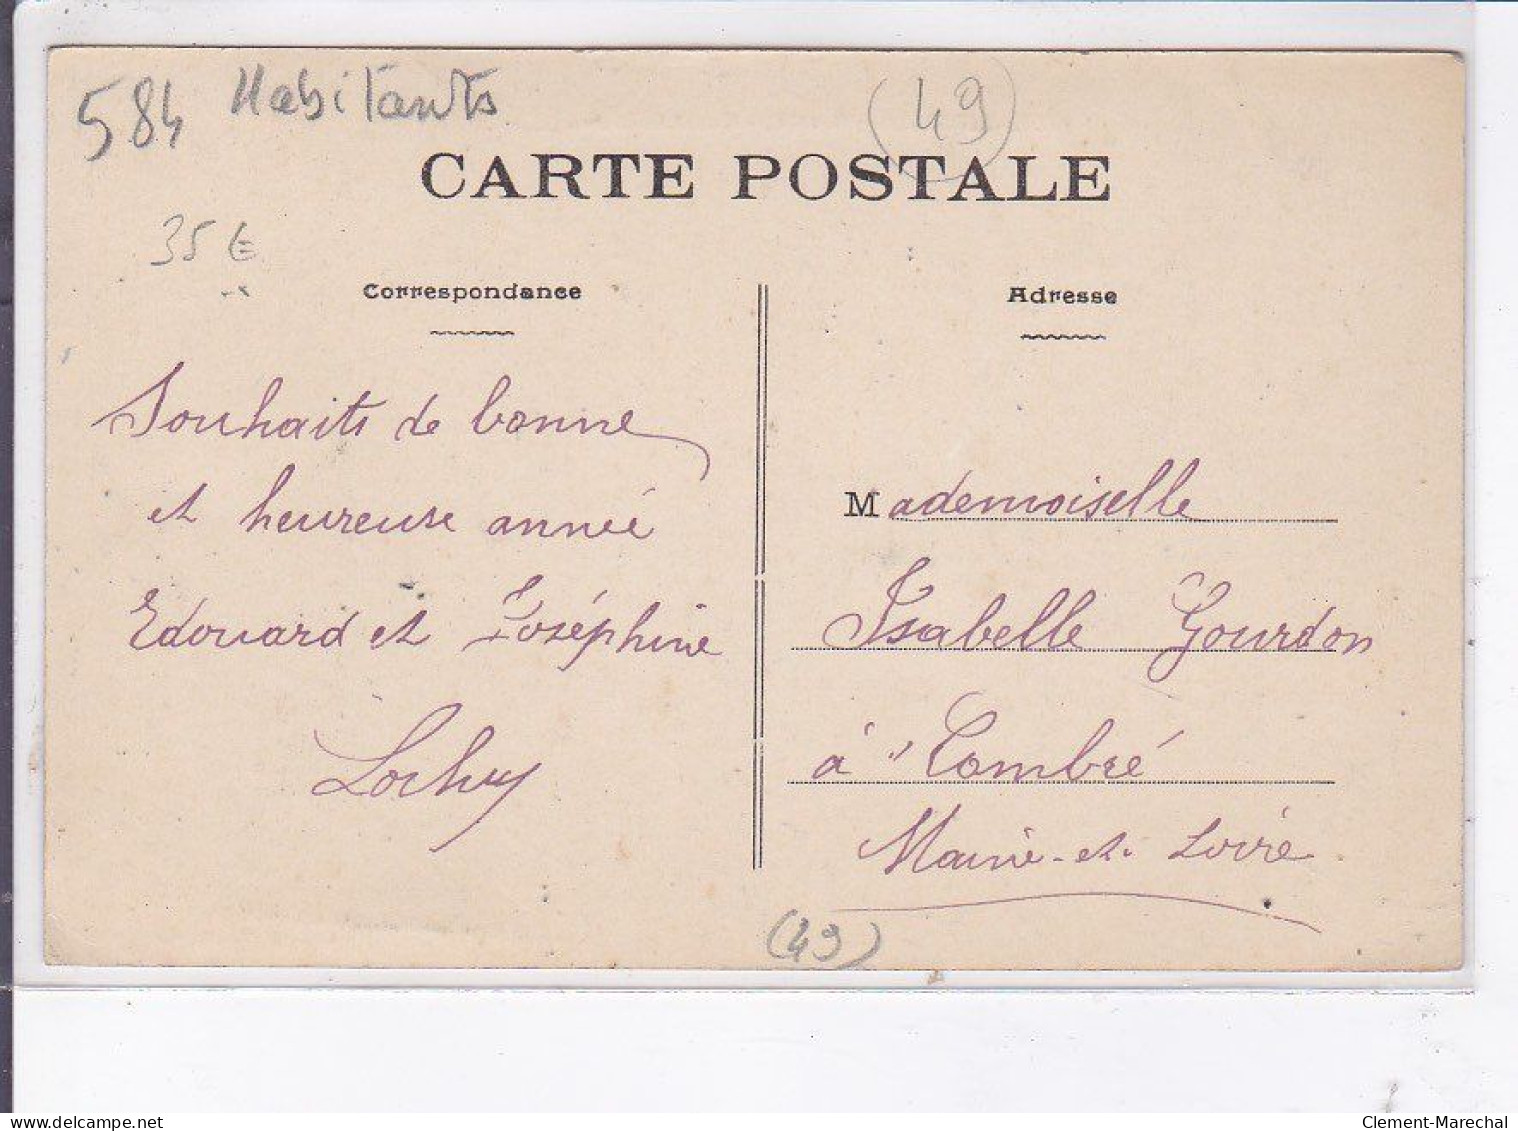 584 Habitants
(49)
CARTE POSTALE
35 €
Correspondance
Adresse
Souhaits de bonne
et heureuse année
Edouard et Joséphine
Mademoiselle
Isabelle Gourdon
à Combré
Maine-et-Loire
(49)
Clement-Marechal